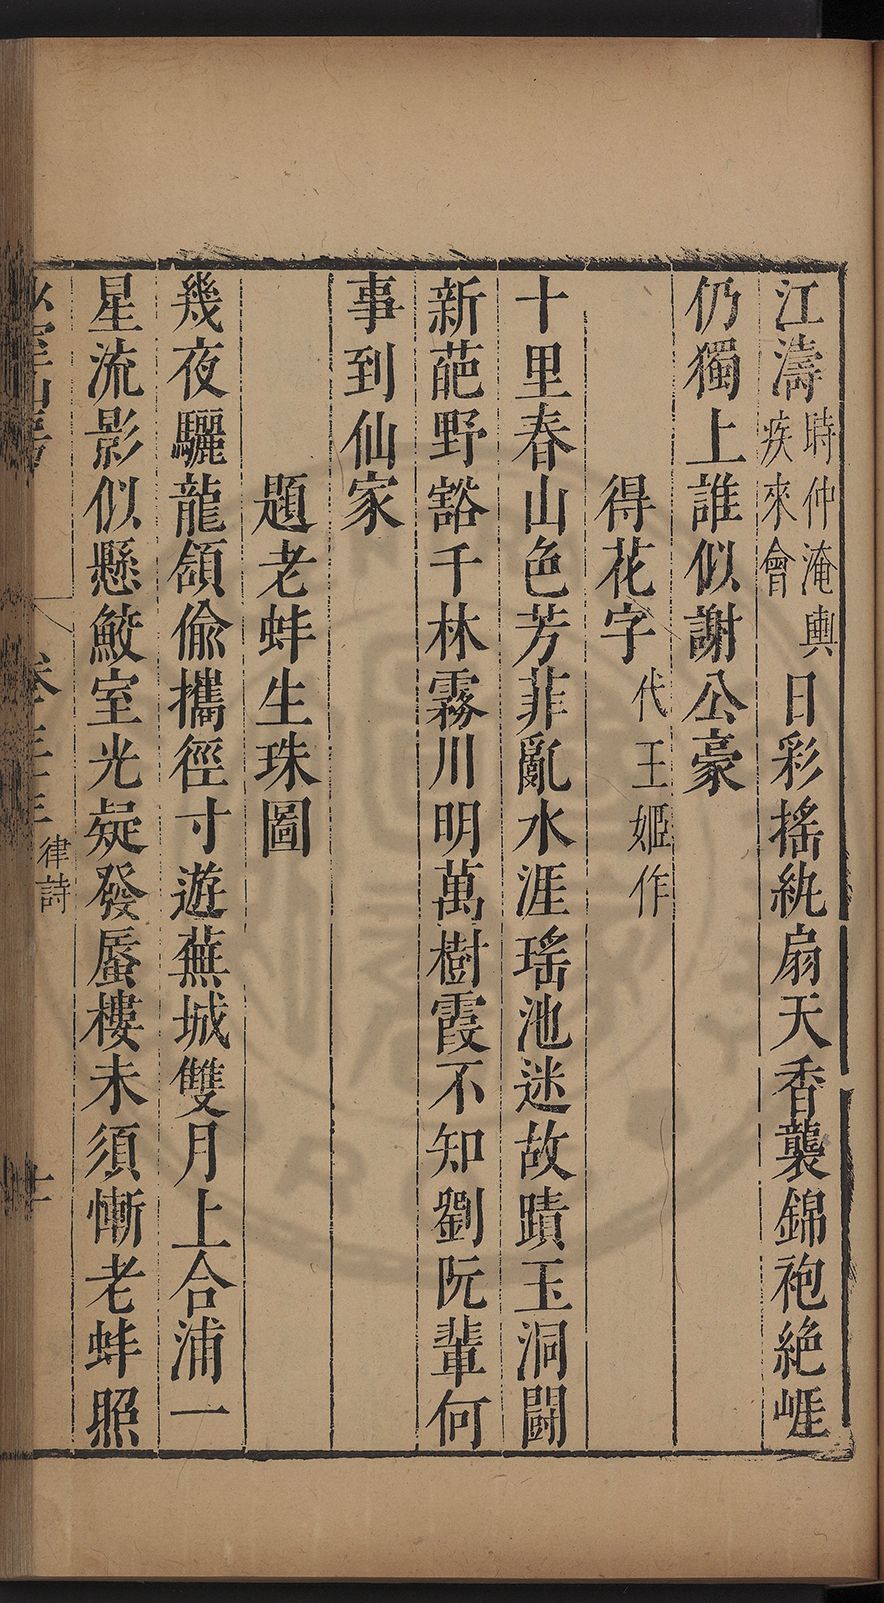 江濤時仲淹輿疾來會日彩搖紈扇天香襲錦袍絶崕
仍獨上誰似謝公豪
得花字代王姬作
十里春山色芳菲亂水涯瑤池迷故蹟玉洞闢
新葩野豁千林霧川明萬樹霞不知劉阮輩何
事到仙家
題老蚌生珠圖
幾夜驪龍頷偷攜徑寸遊蕪城雙月上合浦一
星流影似懸鮫室光疑發蜃樓未須慚老蚌照
律詩